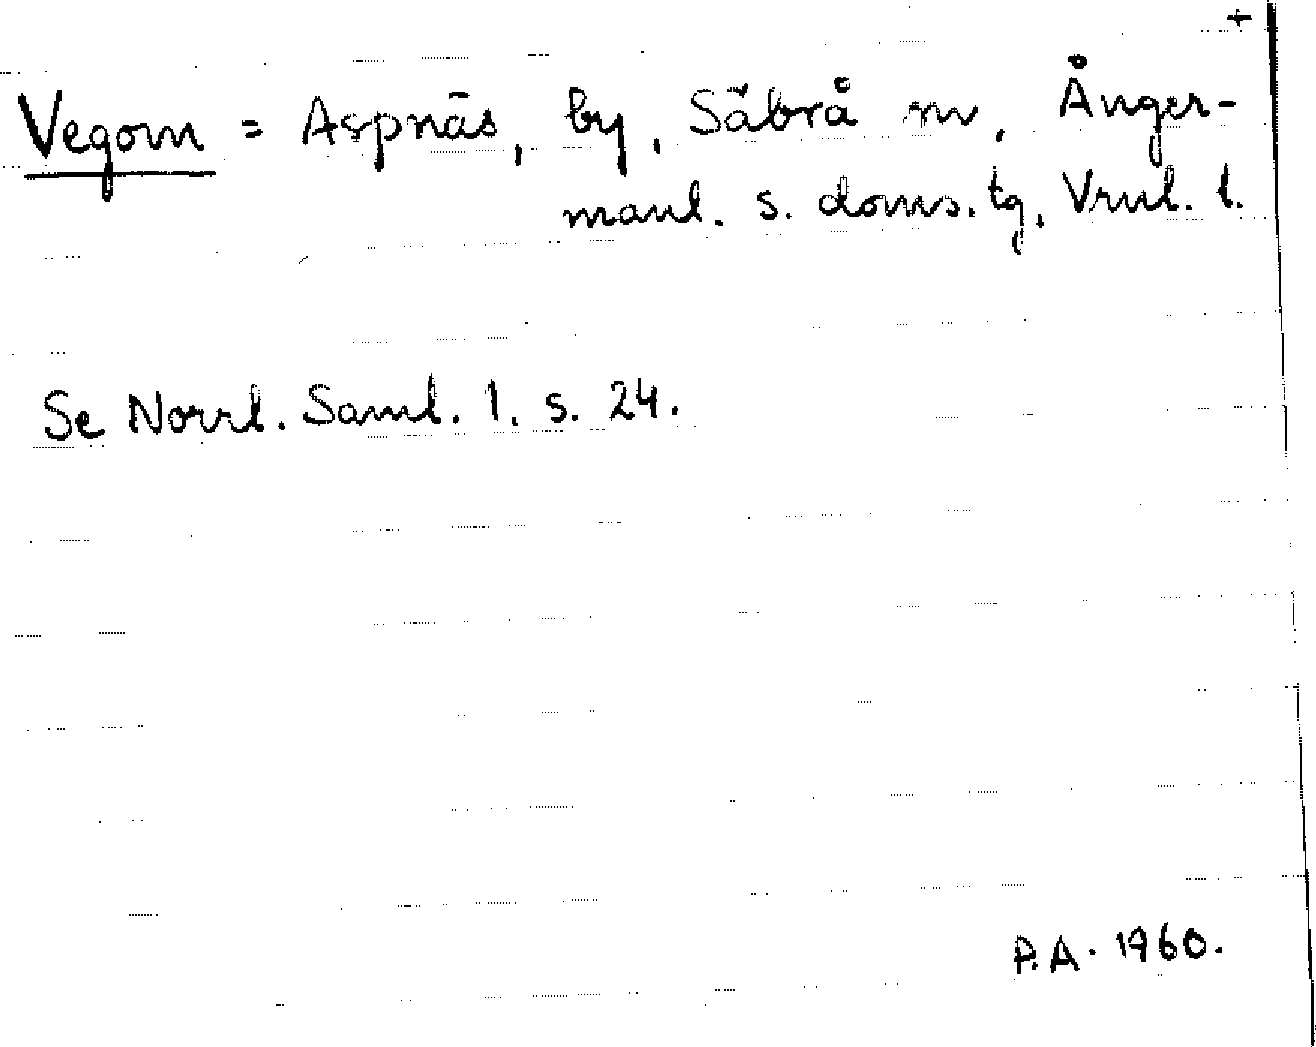 +
Vegom = Aspnäs, by, Säbrå sn, Ånger-
manl. s. doms. tg, Vrnl. l.
Se Norrl. Saml. 1. s. 24.
P.A. 1960.